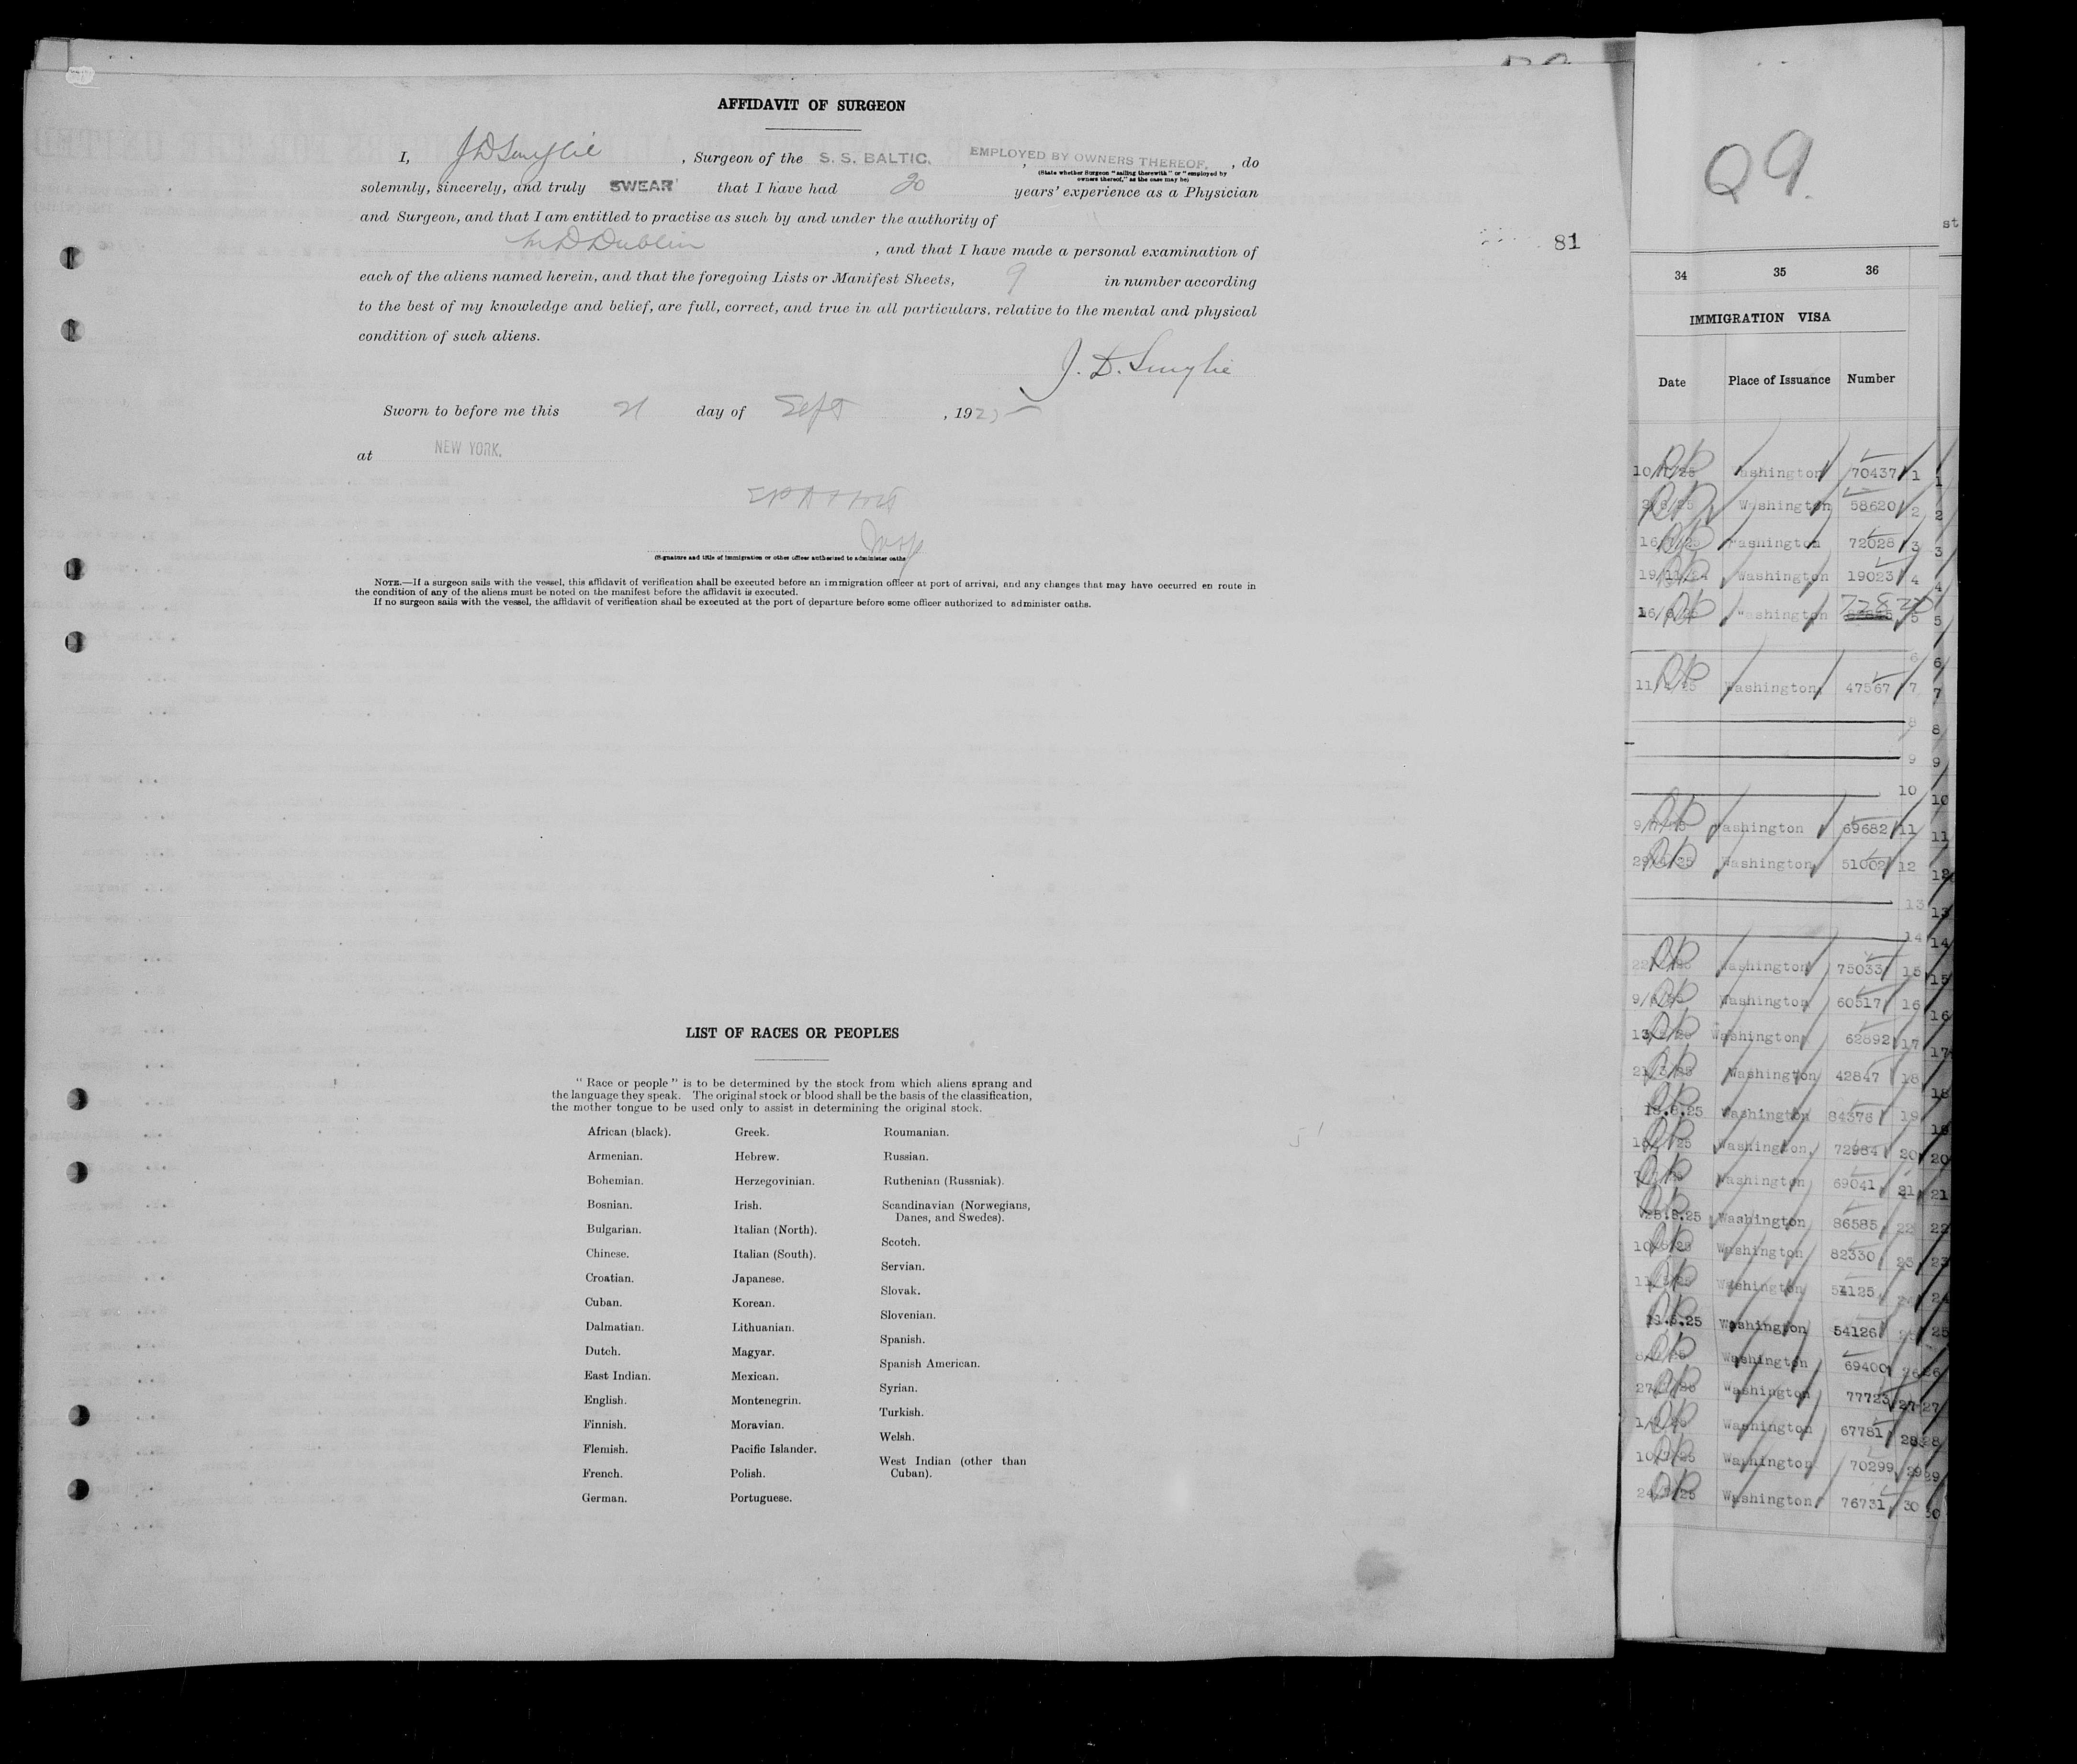 AFFIDAVIT OF SURGEON
I, J D Smylie, Surgeon of the S. S. BALTIC, EMPLOYED BY OWNERS THEREOF, do
(State whether Surgeon "sailing therewith" or "employed by
owners thereof," as the case may be)
solemnly, sincerely, and truly SWEAR that I have had 20 years' experience as a Physician
and Surgeon, and that I am entitled to practise as such by and under the authority of
M D Dublin, and that I have made a personal examination of
each of the aliens named herein, and that the foregoing Lists or Manifest Sheets, 9 in number according
to the best of my knowledge and belief, are full, correct, and true in all particulars, relative to the mental and physical
condition of such aliens.
J. D. Smylie
Sworn to before me this 21 day of Sept, 1925
at NEW YORK.
Insp
(Signature and title of immigration or other officer authorized to administer oaths)
NOTE.—If a surgeon sails with the vessel, this affidavit of verification shall be executed before an immigration officer at port of arrival, and any changes that may have occurred en route in
the condition of any of the aliens must be noted on the manifest before the affidavit is executed.
If no surgeon sails with the vessel, the affidavit of verification shall be executed at the port of departure before some officer authorized to administer oaths.
81
LIST OF RACES OR PEOPLES
"Race or people" is to be determined by the stock from which aliens sprang and
the language they speak. The original stock or blood shall be the basis of the classification,
the mother tongue to be used only to assist in determining the original stock.
African (black).
Armenian.
Bohemian.
Bosnian.
Bulgarian.
Chinese.
Croatian.
Cuban.
Dalmatian.
Dutch.
East Indian.
English.
Finnish.
Flemish.
French.
German.
Greek.
Hebrew.
Herzegovinian.
Irish.
Italian (North).
Italian (South).
Japanese.
Korean.
Lithuanian.
Magyar.
Mexican.
Montenegrin.
Moravian.
Pacific Islander.
Polish.
Portuguese.
Roumanian.
Russian.
Ruthenian (Russniak).
Scandinavian (Norwegians,
Danes, and Swedes).
Scotch.
Servian.
Slovak.
Slovenian.
Spanish.
Spanish American.
Syrian.
Turkish.
Welsh.
West Indian (other than
Cuban).
Q9.
st
34 35 36
IMMIGRATION VISA
Date Place of Issuance Number
Washington 70437 1 1
Washington 58620 2 2
Washington 72028 3 3
Washington 19023 4 4
Washington 5 5
6 6
Washington 47567 7 7
8 8
9 9
10 10
Washington 69682 11 11
Washington 51002 12 12
13 13
14 14
Washington 75033 15 15
Washington 60517 16 16
Washington 62892 17 17
Washington 42847 18 18
18.8.25 Washington 84376 19 19
Washington 72984 20 20
Washington 69041 21 21
28.8.25 Washington 86585 22 22
Washington 82330 23 23
Washington 54125 24 24
11.5.25 Washington 54126 25 25
Washington 69400 26 26
Washington 77723 27 27
Washington 67781 28 28
Washington 70299 29 29
Washington 76731 30 30